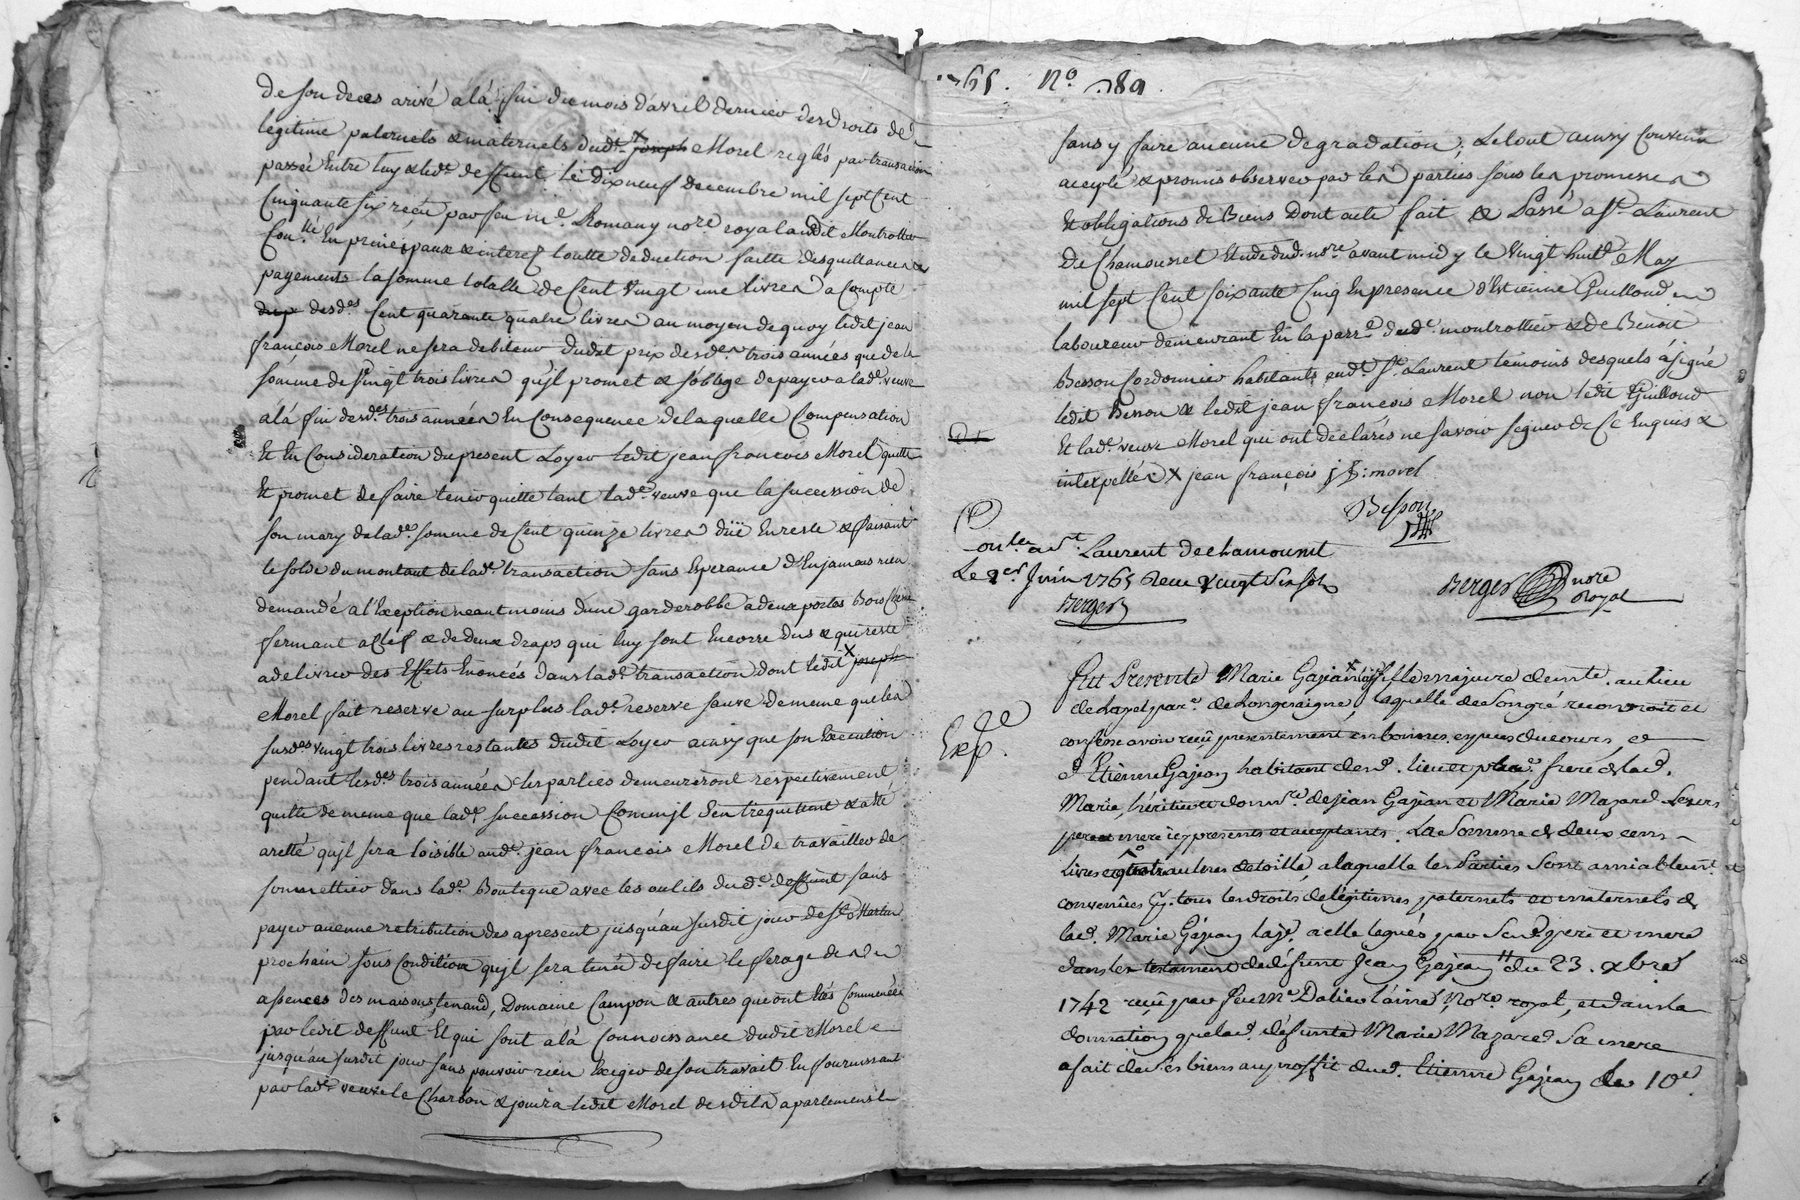 de son deces arivé a la fin du mois d'avril dernier des droits de
legitime paternels & maternels dudt. x joseph Morel reglés par transaction
passée Entre luy & led. deffunt le dixneuf decembre mil sept Cent
Cinquante six reçu par feu me. Romany nore royal audit Montrottier
En principaux & interez toutte deduction faitte des quittances &
payements la somme totalle de Cent vingt une livres a Compte
desdes Cent quarante quatre livres au moyen de quoy ledit jean
françois Morel ne sera debiteur dudit prix desdes trois années que de la
somme de vingt trois livres qu'jl promet & s'oblige de payer a lade. veuve
a la fin desdes trois années En Consequence de la quelle Compensation
Et En Consideration du present Loyer ledit jean françois Morel quitte
Et promet de faire tenir quitte tant lade. veuve que la succession de
son mary de lade. somme de Cent quinze livres düe En reste & faisant
le solde du montant de lade. transaction sans Esperance d'En jamais rien
demandé a l'Exeption neantmoins d'une garderobbe a deux portes Bois Chene
fermant a Clef & de deux draps qui luy sont Encorre dus & qui reste
a delivrer des Effets Enoncés dans lade. transaction dont ledit x joseph
Morel fait reserve au surplus lade. reserve sauve de meme que les
susdes vingt trois livres restantes dudit Loyer ainsy que son Execution
pendant lesdes trois années les parties demeureront respectivement
quitte de meme que lade. succession Comm'jl s'entrequittent & a été
aretté qu'jl sera loisible aude. jean françois Morel de travailler de
son mettier dans lade. Boutique avec les outils dude. deffunt sans
payer aucune retribution des apresent jusqu'au susdit jour de St. Martin
prochain sous Condition qu'jl sera tenu de faire le ferage des
assences des maisons tenand, Domaine Campon & autres qui ont étés Commencées
par ledit deffunt Et qui sont a la Connoissance dudit Morel
jusqu'au susdit jour sans pouvoir rien Exiger de son travail En fournissant
par lade. veuve le Charbon & jouira ledit Morel desdits apartements
65. No. 89
sans y faire aucune degradation; Le tout ainsy Convenu
accepté & promis observer par les parties sous les promesses
Et obligations de Biens Dont acte fait & Passé a St. Laurent
De Chamousset Etude dud. nore avant midy le vingt huitd May
mil sept Cent soixante Cinq En presence d'Estienne Guilloud
laboureur demeurant En la parre dude. montrottier & de Benoit
Besson Cordonnier habitants end. St. Laurent temoins desquels a signé
ledit Besson & ledit jean françois Morel non ledit Guilloud
Et lade. veuve Morel qui ont declarés ne savoir signer de Ce Enquis &
interpellés x jean françois j f: morel
Besson
Conlé a St. Laurent de chamousset
Le 1er Juin 1765 Receu vingt six sols
Berger
Berger nore Royal
Exp.
Fut Presente Marie Gajean x fille majeure demte. au lieu
de Layet parre. de Longessaigne, laquelle de son gré reconnoit et
confesse avoir reçû presentement en bonnes especes du cours,
d'Etienne Gajean habitant dend. lieu et parre. frere de lad.
Marie, héritier et donnre. de Jean Gajean et Marie Mazard Leurs
pere et mere icy presents et acceptants. La Somme de deux cens
livres et autres de toille, a laquelle les Parties Sont amiablemt.
convenües pr. tous les droits de légitimes paternels et maternels de
lad. Marie Gajean a elle legués par Ses pere et mere
dans les testament dudt deffunt Jean Gajean du 23. xbre
1742 reçû par feu Me. Dalier l'ainé, Nore. royal, et dans la
donnation que lad. défunte Marie Mazard Sa mere
a fait de Ses biens au proffit dud. Etienne Gajean le 10e